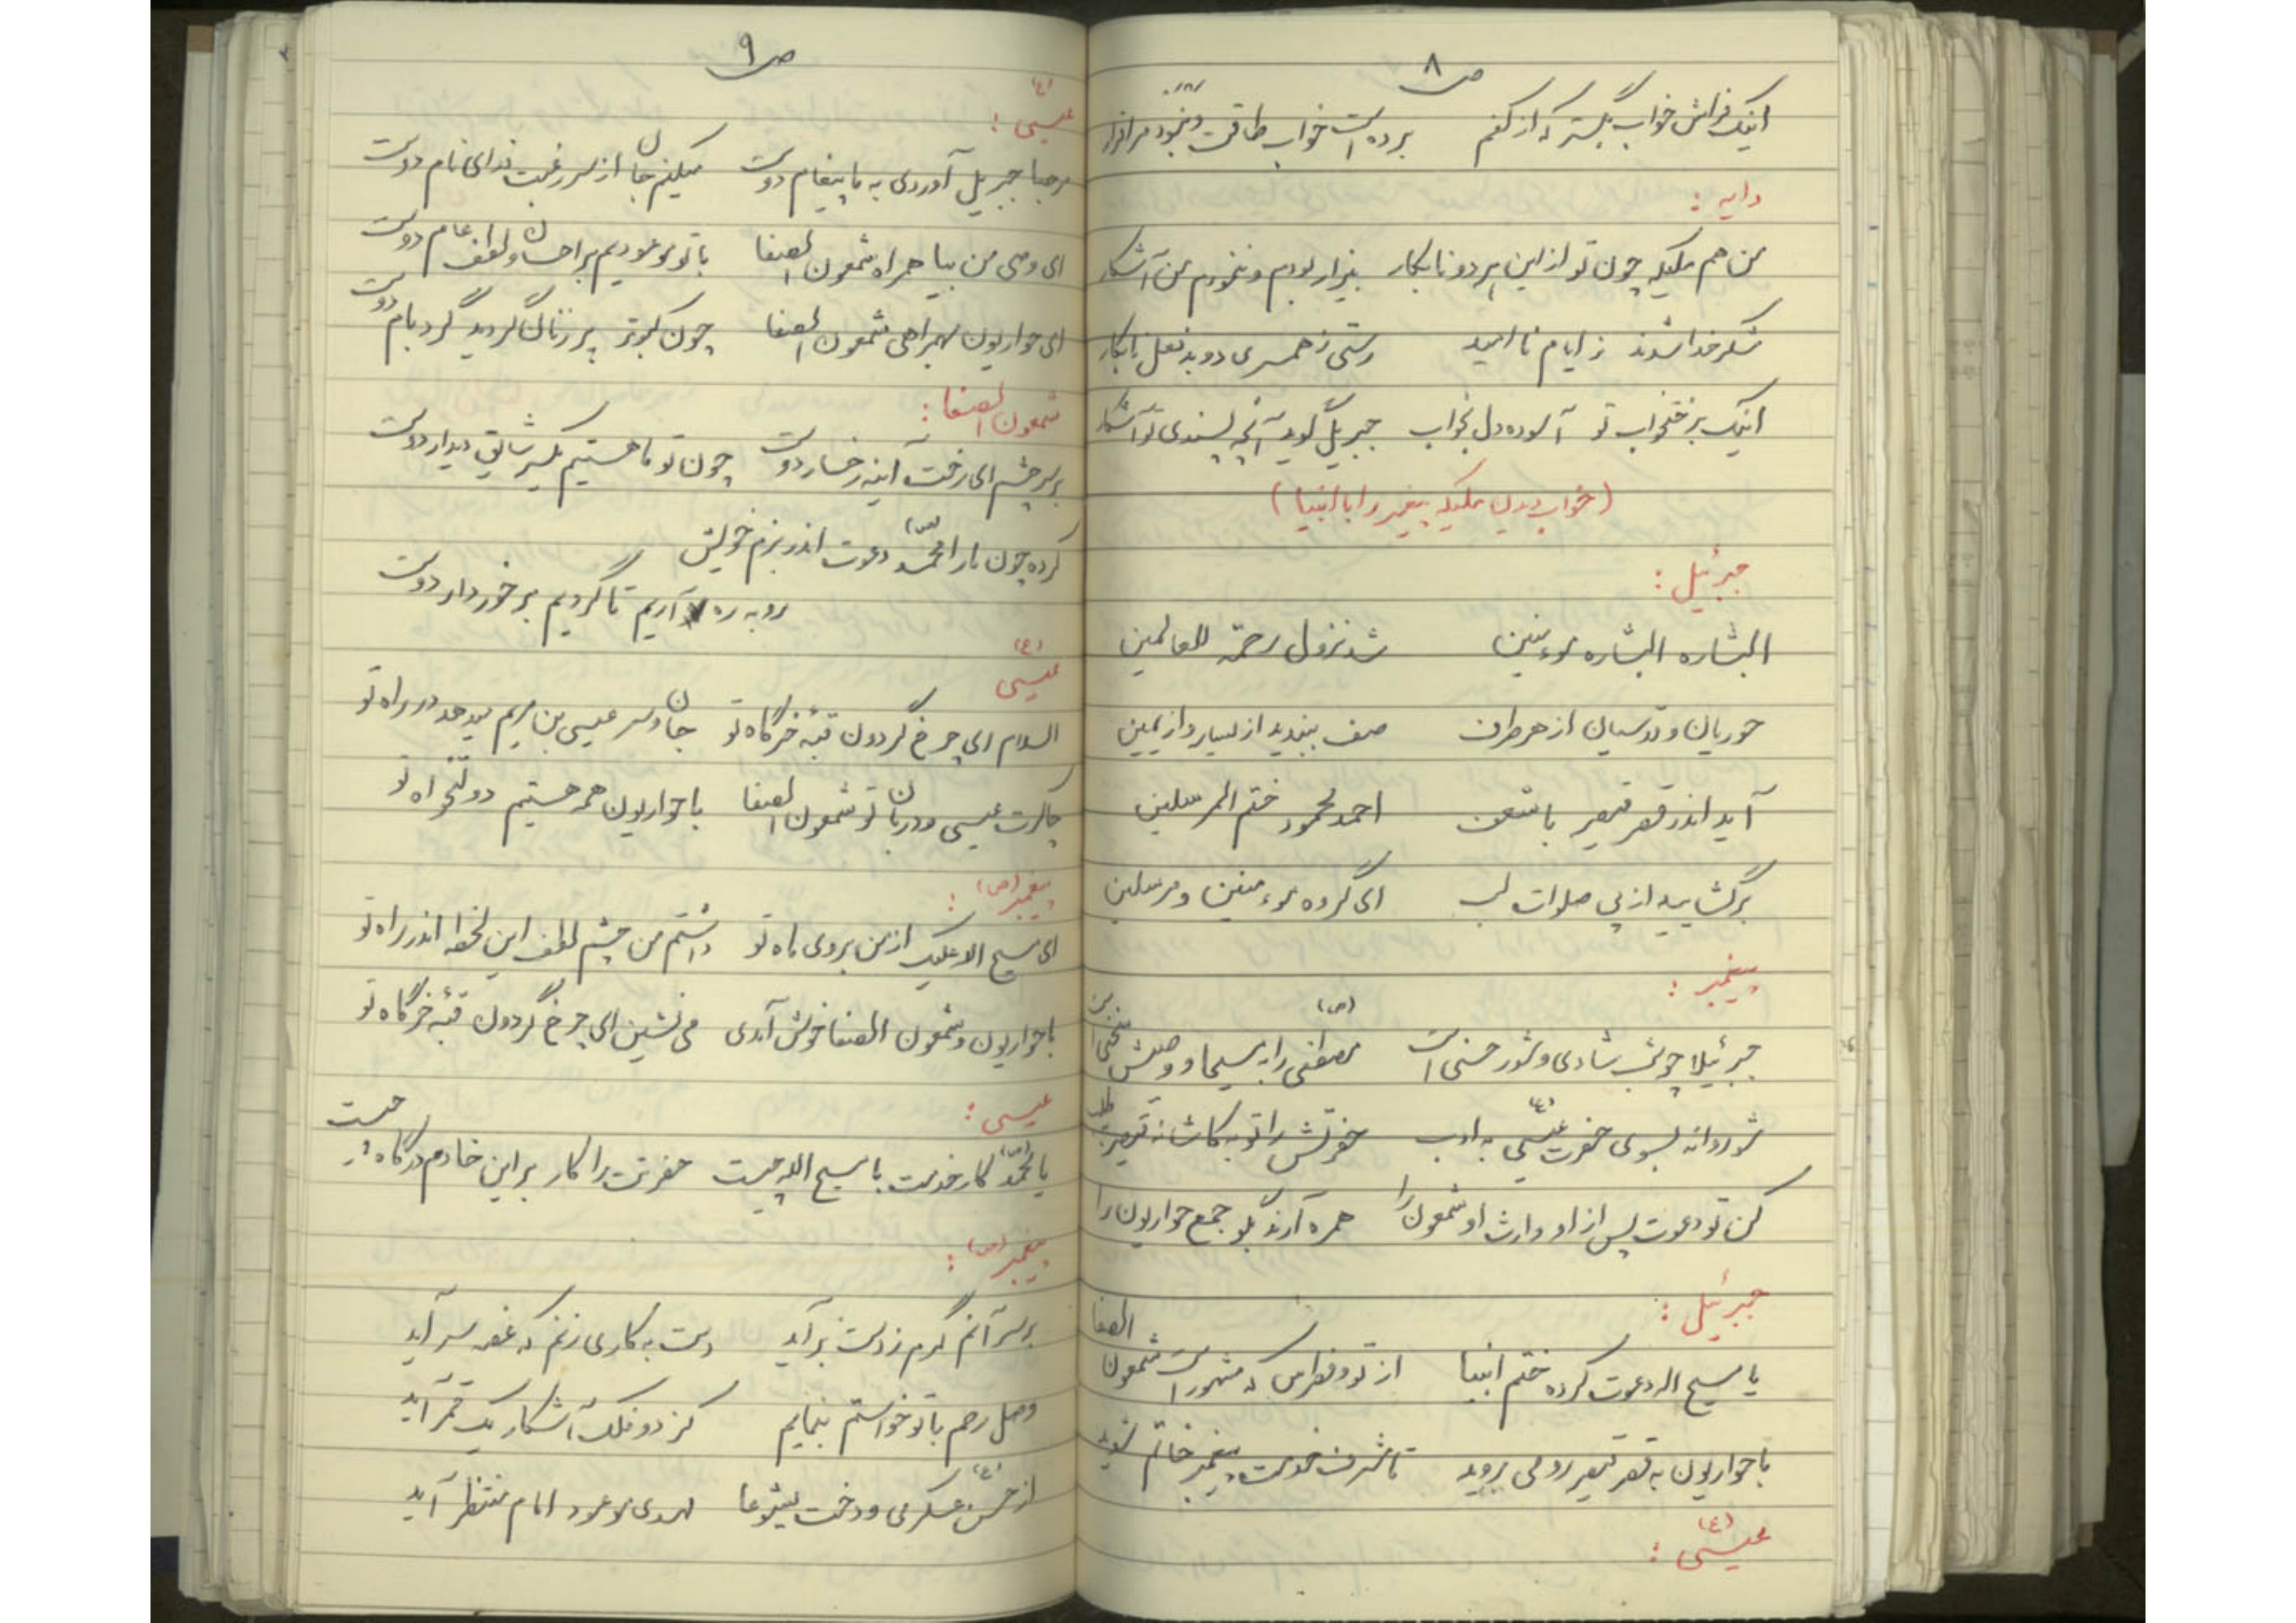 ص ۸
اینک فراش خواب بگستر که از کفم برده است خواب طاقت و نبود مرا قرار
دایه :
من هم ملیکه چون تو از این هر دو نابکار بیزار بودم و نخوردم من آشکار
شکر خدا شدند ز ایام نا امید رستی ز همسری دو بد فعل نابکار
اینک برختخواب تو آسوده دل بخواب جبریل گوید آنچه پسندی تو آشکار
(خواب دیدن ملیکه پیغمبر را با انبیا)
جبرئیل :
البشاره البشاره موءمنین شد نزول رحمة للعالمین
حوریان و قدسیان از هر طرف صف ببندید از یسار و از یمین
آید اندر قصر قیصر با شعف احمد محمود ختم المرسلین
برگشایید از پی صلوات لب ای گروه موءمنین و مرسلین
پیغمبر :
جبرئیلا چو شب شادی و شور حسنی است مصطفی (ص) را به مسیحا و وصیش سخنی است
شو روانه بسوی حضرت عیسی (ع) به ادب حضرتش را تو به کاشانه قیصر بطلب
کن تو دعوت پس از او وارث او شمعون را همره آرند بگو جمع حواریون را
جبرئیل :
یا مسیح اله دعوت کرده ختم انبیا از تو و فطرس که مشهور است شمعون الصفا
با حواریون به قصر قیصر رومی روید تا شرف خدمت پیغمبر خاتم شوید
عیسی (ع) :
ص ۹
عیسی (ع) :
مرحبا جبریل آوردی به ما پیغام دوست میکنم جان از سر رغبت فدای نام دوست
ای وصی من بیا همراه شمعون الصفا با تو موعودیم بر احسان و لطف عام دوست
ای حواریون بهمراهی شمعون الصفا چون کبوتر پر زنان گردید گرد بام دوست
شمعون الصفا :
بر سر چشم ای رخت آئینه رخسار دوست چون تو ما هستیم یکسر شائق دیدار دوست
کرده چون ما را محمد (ص) دعوت اندر بزم خویش
رو به ره آریم تا گردیم برخوردار دوست
عیسی (ع)
السلام ای چرخ گردون قبه خرگاه تو جان و سر عیسی بن مریم میدهد در راه تو
چاکرت عیسی و دربان تو شمعون الصفا با حواریون همه هستیم دولتخواه تو
پیغمبر (ص) :
ای مسیح اله علیک از من بروی ماه تو داشتم من چشم لطف این لحظه اندر راه تو
با حواریون و شمعون الصفا خوش آمدی می نشین ای چرخ گردون قبه خرگاه تو
عیسی :
یا محمد (ص) کار خدمت با مسیح اله چیست حضرتت را کار بر این خادم درگاه چیست
پیغمبر (ص) :
بر سر آنم گرم ز دست بر آید دست به کاری زنم که غصه سر آید
وصل رحم با تو خواستم بنمایم کز دو فلک آشکار یک قمر آید
از حسن (ع) عسکری و دخت یشوعا مهدی موعود امام منتظر آید